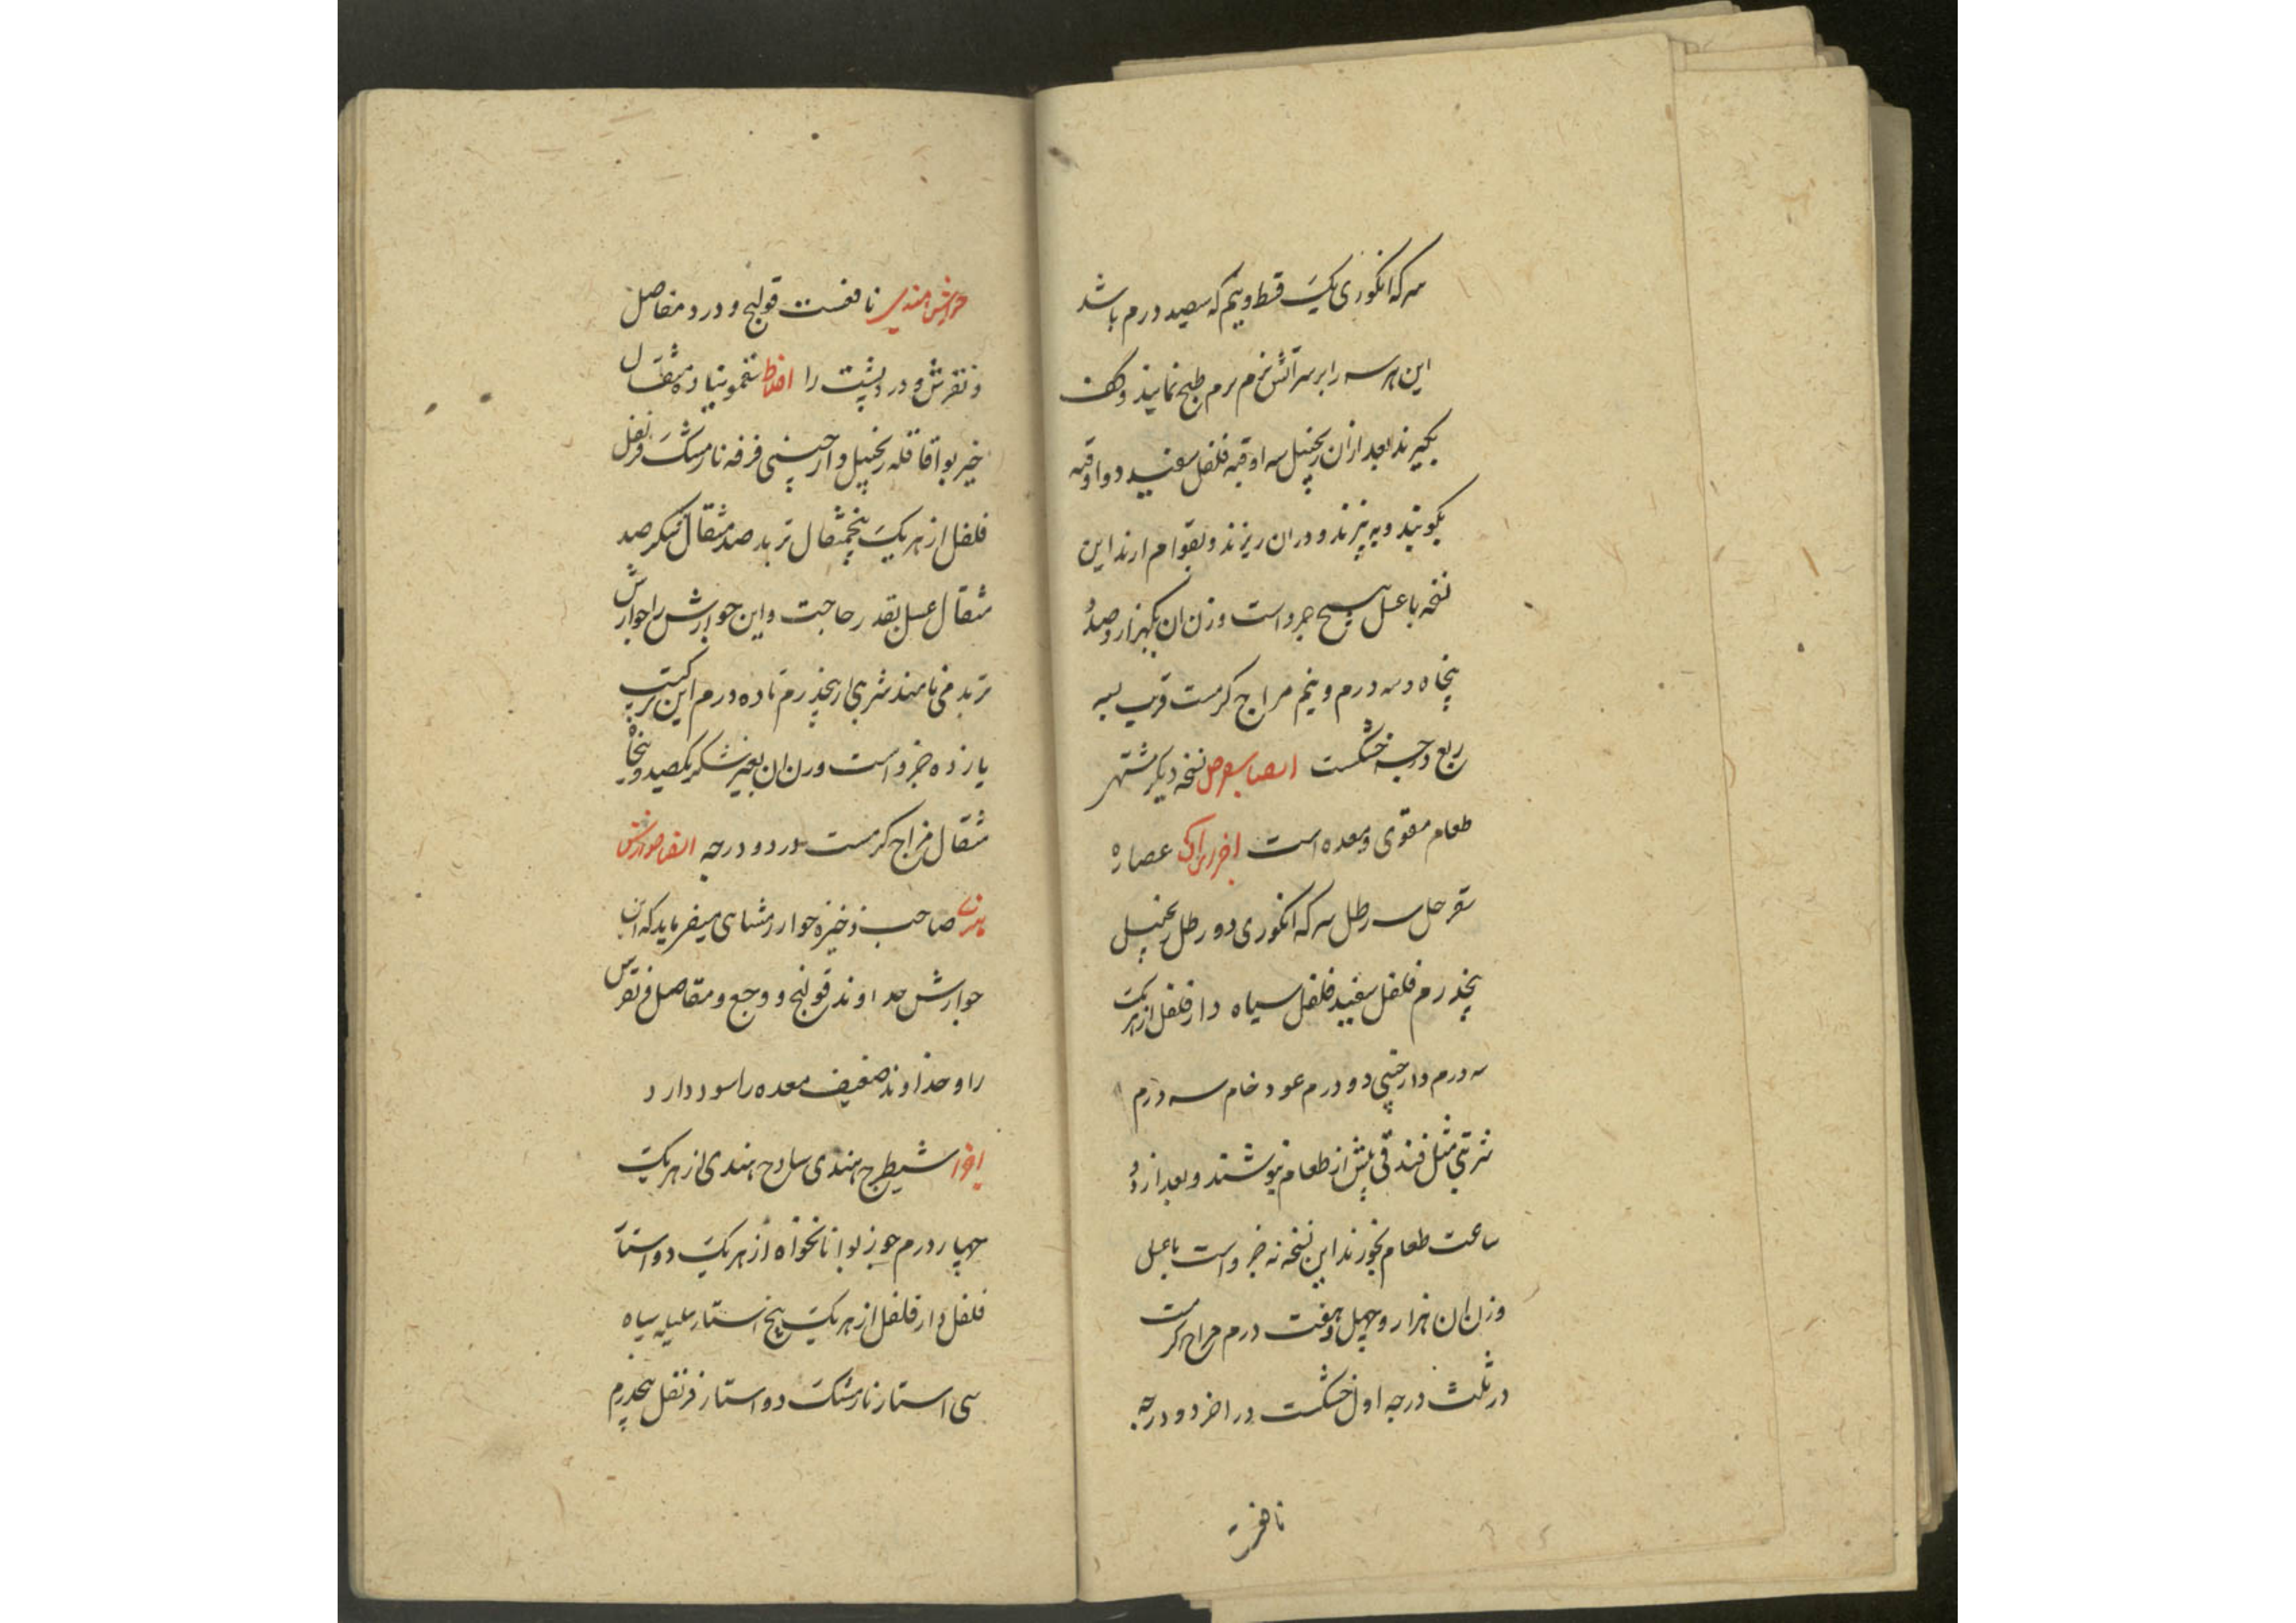 سرکه انکوری یک قسط و نیم که سیصد درم باشد
این هر سه را بر سر آتش نرم نرم طبخ نمایند و کف
بکیرند بعد ازان زنجبیل سه اوقیه فلفل سفید دو اوقیه
بکوبند و به پزند و دران ریزند و بقوام ارند این
نسخه با عسل پنج جزو است وزن ان یکهزار و صد و
پنجاه و سه درم و نیم مزاج کرمست قریب بسه
ربع درجه خشکست ایضا سفرجل نسخه دیکر مشتهی
طعام مقوی معده است اجزای ان عصاره
سفرجل سه رطل سرکه انکوری دو رطل زنجبیل
پنجدرم فلفل سفید فلفل سیاه دار فلفل از هر یک
سه درم دارچینی دو درم عود خام سه درم
شربتی مثل فندقی پیش از طعام بنوشند و بعد از دو
ساعت طعام بخورند این نسخه نه جزو است با عسل
وزن ان هزار و چهل و هفت درم مزاج کرمست
در ثلث درجه اول خشکست در اخر دو درجه
نافعست
جوارش هندی نافعست قولنج و درد مفاصل
و نقرس و درد پشت را اخلاط سقمونیا ده مثقال
خیربوا قاقله زنجبیل دارچینی قرفه نارمشک قرنفل
فلفل از هر یک پنجمثقال تربد صد مثقال شکر صد
مثقال عسل بقدر حاجت و این جوارش را جوارش
تربد می نامند شربتی از پنجدرم تا ده درم این ترکیب
یازده جزو است وزن ان بغیر شکر یکصد و پنجاه
مثقال مزاج کرمست در دو درجه ایضا جوارش
هندی صاحب ذخیره خوارزمشاهی میفرماید که این
جوارش خداوند قولنج و وجع و مفاصل و نقرس
را و خداوند ضعیف معده را سود دارد
اجزا شیطرج هندی ساذج هندی از هر یک
چهار درم جوزبوا نانخواه از هر یک دو استار
فلفل دار فلفل از هر یک پنج استار هلیله سیاه
سی استار نارمشک دو استار قرنفل پنجدرم